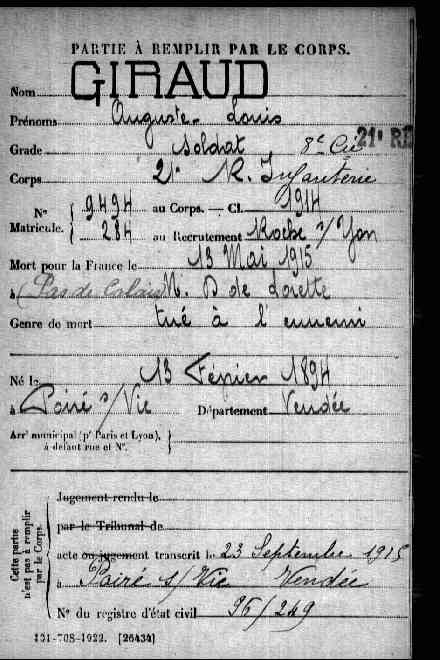 PARTIE À REMPLIR PAR LE CORPS.
Nom GIRAUD
Prénoms Auguste Louis
Grade Soldat 8e Cie 21e RE
Corps 21e R. Infanterie
N° Matricule. { 9494 au Corps. — Cl. 1914
284 au Recrutement Roche s/ Yon
Mort pour la France le 13 Mai 1915
à (Pas de Calais) N. D de Lorette
Genre de mort tué à l'ennemi
Né le 13 Février 1894
à Poiré s/ Vie Département Vendée
Arrt municipal (pr Paris et Lyon), à défaut rue et N°. }
Cette partie n'est pas à remplir par le Corps.
Jugement rendu le
par le Tribunal de
acte ou jugement transcrit le 23 Septembre 1915
à Poiré s/ Vie Vendée
N° du registre d'état civil 96/249
131-708-1922. [26434]